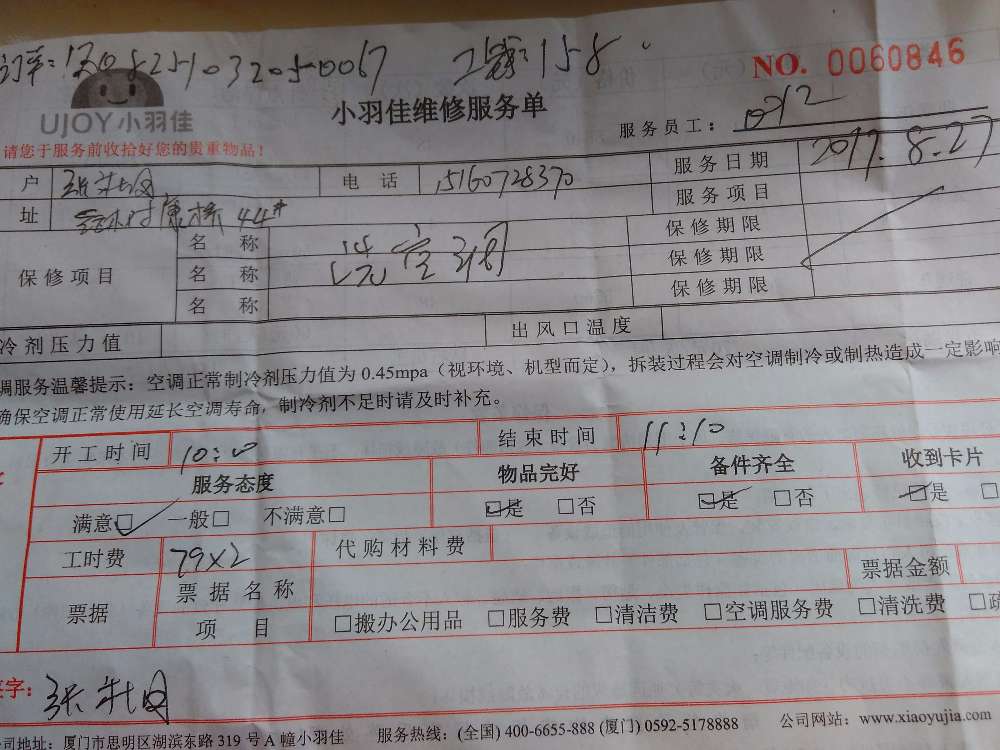 NO. 0060846
UJOY小羽佳
小羽佳维修服务单
服务员工: 0912
请您于服务前收拾好您的贵重物品!
户 电 话 15160728370 服务日期 2017.8.27
址 康桥 44# 服务项目
保修项目 名 称 保修期限
名 称 洗空调 保修期限
名 称 保修期限
冷剂压力值 出风口温度
调服务温馨提示：空调正常制冷剂压力值为 0.45mpa（视环境、机型而定），拆装过程会对空调制冷或制热造成一定影响
确保空调正常使用延长空调寿命，制冷剂不足时请及时补充。
开工时间 10:00 结束时间 11:10
服务态度 物品完好 备件齐全 收到卡片
满意□ 一般□ 不满意□ □是 □否 □是 □否 □是 □
工时费 79×2 代购材料费
票据 票据名称 票据金额
项 目 □搬办公用品 □服务费 □清洁费 □空调服务费 □清洗费 □疏
签字:
公司地址: 厦门市思明区湖滨东路 319 号 A 幢小羽佳 服务热线: (全国) 400-6655-888 (厦门) 0592-5178888 公司网站: www.xiaoyujia.com